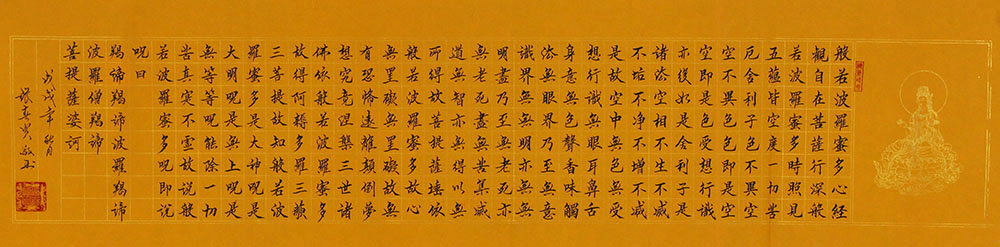 般若波羅蜜多心經
觀自在菩薩行深般
若波羅蜜多時照見
五蘊皆空度一切苦
厄舍利子色不異空
空不異色色即是空
空即是色受想行識
亦復如是舍利子是
諸法空相不生不滅
不垢不净不增不減
是故空中無色無受
想行識無眼耳鼻舌
身意無色聲香味觸
法無眼界乃至無意
識界無無明亦無無
明盡乃至無老死亦
無老死盡無苦集滅
道無智亦無得以無
所得故菩提薩埵依
般若波羅蜜多故心
無罣礙無罣礙故無
有恐怖遠離顛倒夢
想究竟涅槃三世諸
佛依般若波羅蜜多
故得阿耨多羅三藐
三菩提故知般若波
羅蜜多是大神呪是
大明呪是無上呪是
無等等呪能除一切
苦真實不虛故說般
若波羅蜜多呪即說
呪曰
羯諦羯諦波羅羯諦
波羅僧羯諦
菩提薩婆訶
戊戌年秋月
敬书